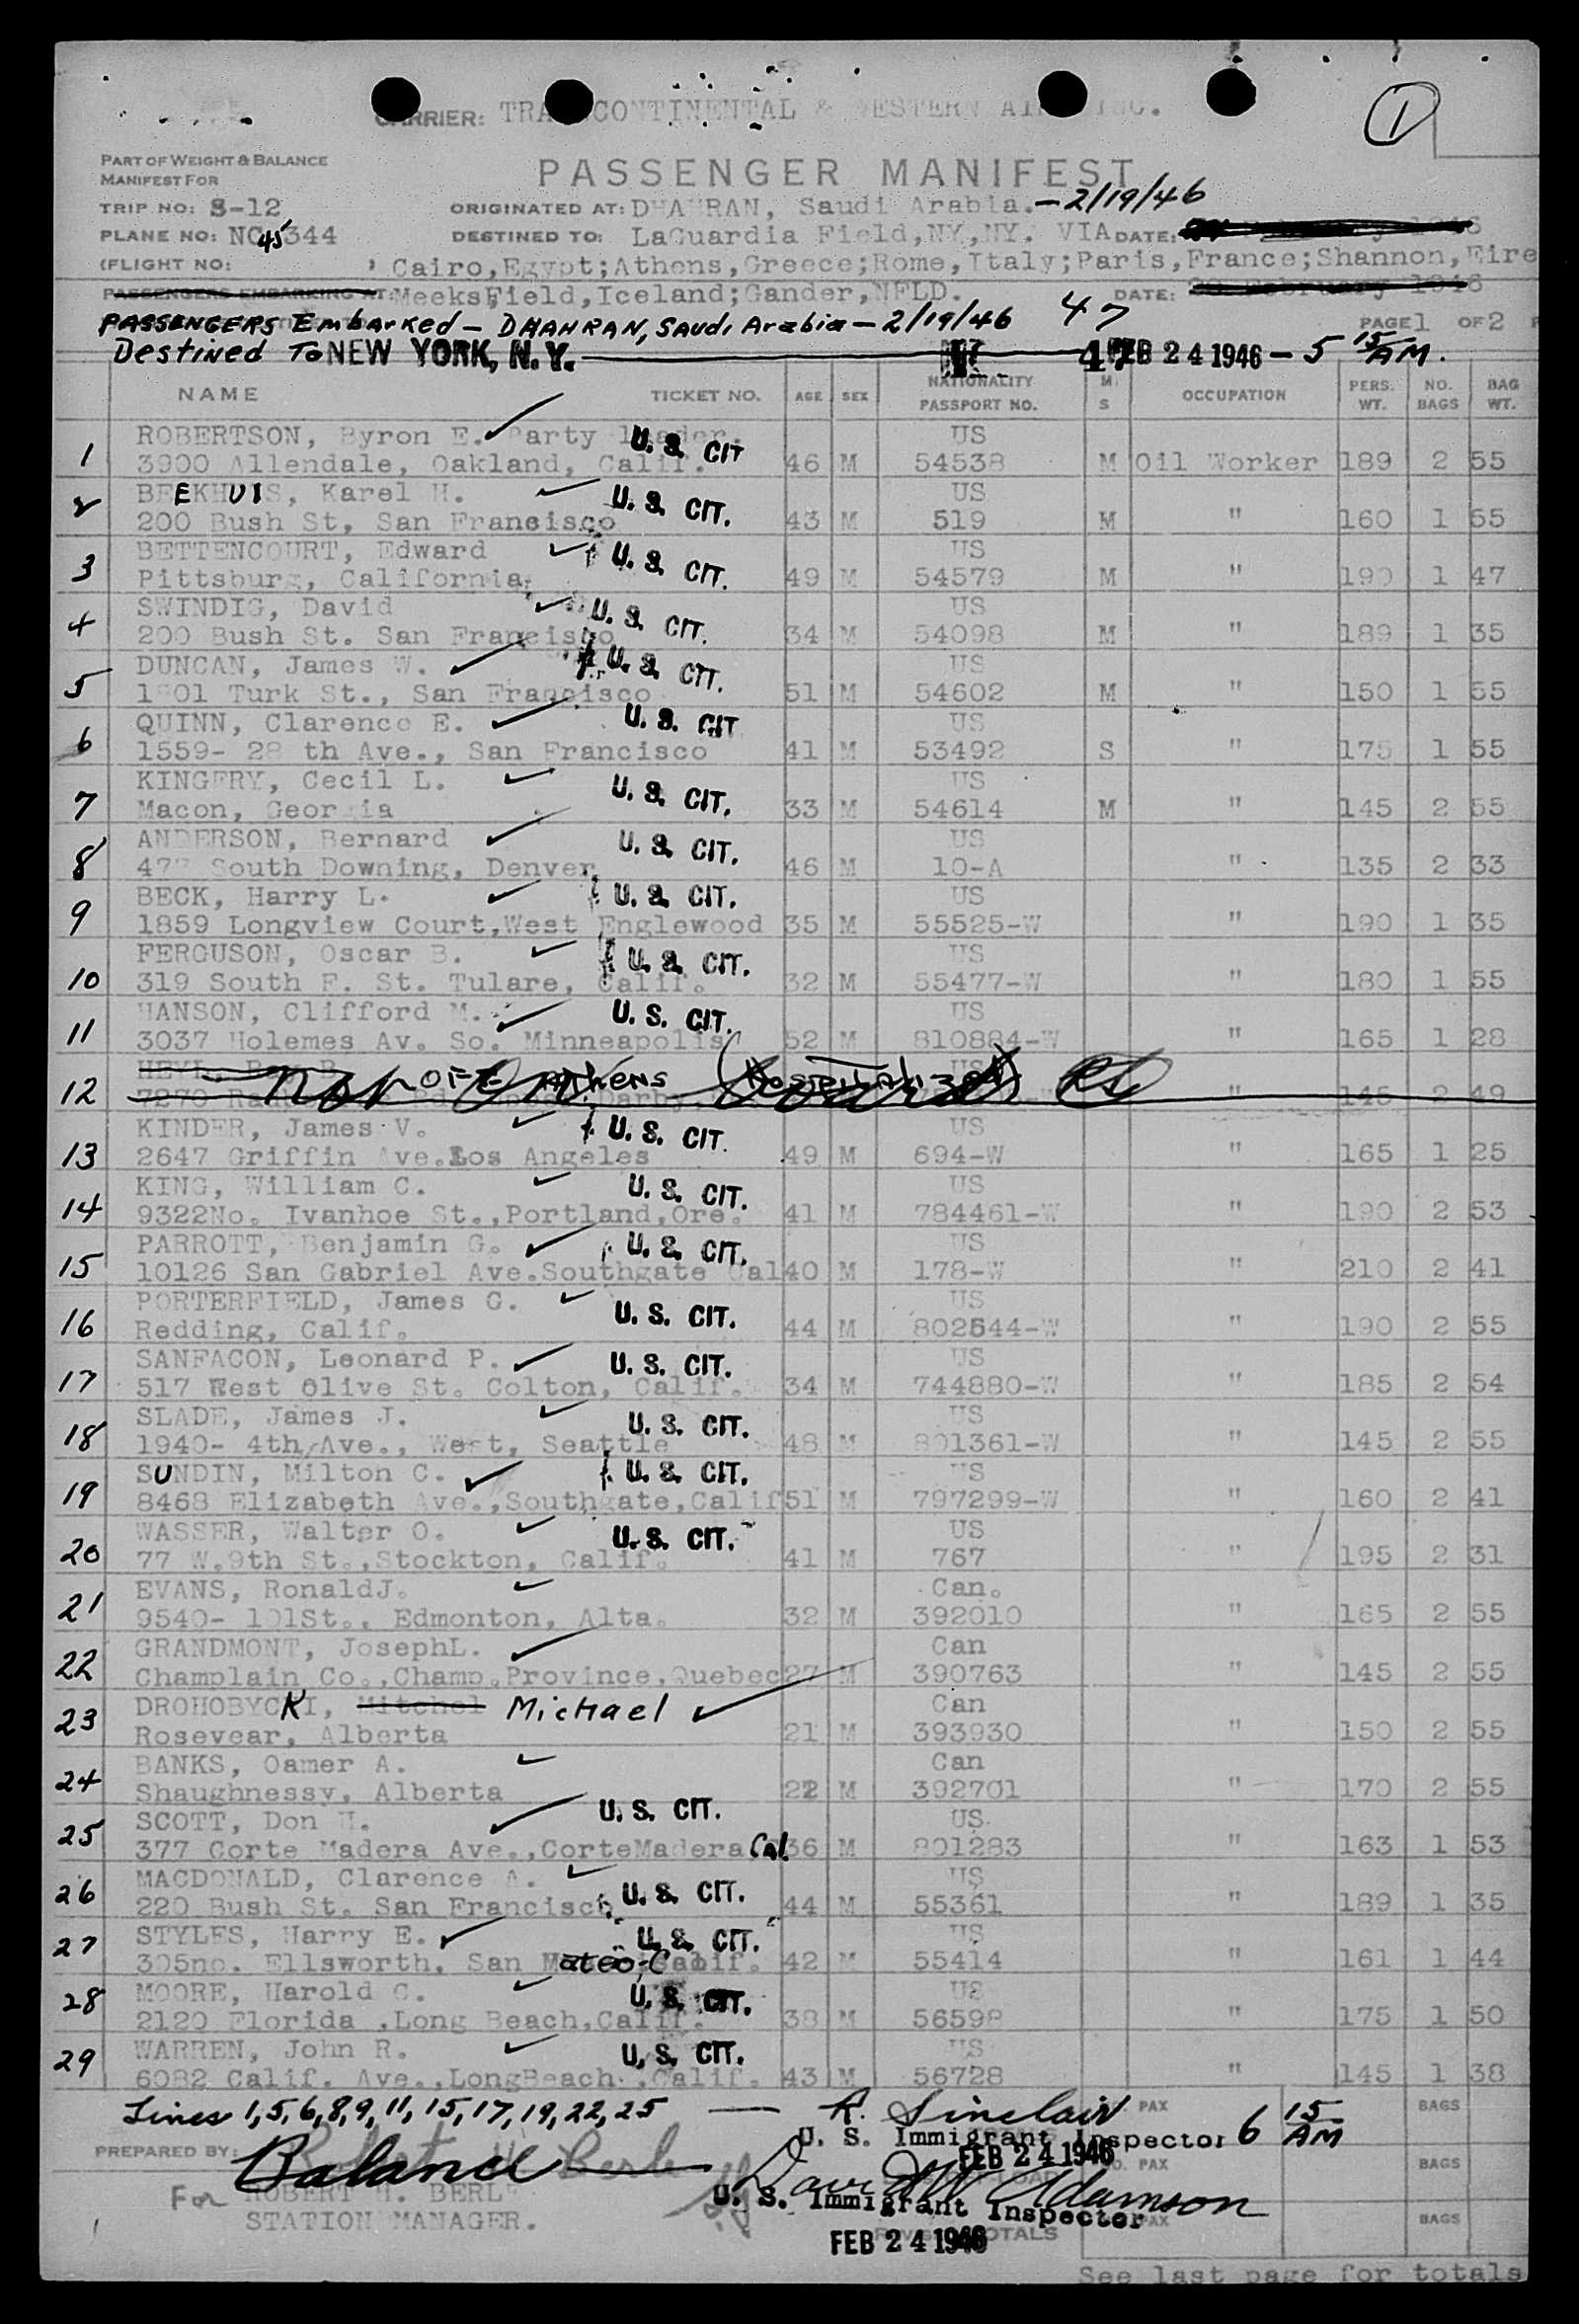 1
CARRIER: TRANSCONTINENTAL & WESTERN AIR INC.
PART OF WEIGHT & BALANCE
MANIFEST FOR
PASSENGER MANIFEST
TRIP NO: S-12 ORIGINATED AT: DHAHRAN, Saudi Arabia. - 2/19/46
PLANE NO: NC 45344 DESTINED TO: LaGuardia Field,NY,NY. VIA DATE:
(FLIGHT NO: ) Cairo,Egypt;Athens,Greece;Rome,Italy;Paris,France;Shannon,Eire
PASSENGERS EMBARKING AT: Meeks Field,Iceland;Gander,NFLD. DATE: February 1946
PASSENGERS Embarked - DHAHRAN, Saudi Arabia - 2/19/46 47 PAGE 1 OF 2
Destined To NEW YORK, N.Y. 47 FEB 24 1946 - 5 15 AM.
NAME TICKET NO. AGE SEX NATIONALITY PASSPORT NO. M S OCCUPATION PERS. WT. NO. BAGS BAG WT.
ROBERTSON, Byron E. Party leader. U. S. CIT US
1 3900 Allendale, Oakland, Calif. 46 M 54538 M Oil Worker 189 2 55
BEEKHUIS, Karel H. U. S. CIT. US
2 200 Bush St, San Fransisco 43 M 519 M " 160 1 55
BETTENCOURT, Edward U. S. CIT. US
3 Pittsburg, California. 49 M 54579 M " 190 1 47
SWINDIG, David U. S. CIT. US
4 200 Bush St. San Francisco 34 M 54098 M " 189 1 35
DUNCAN, James W. U. S. CIT. US
5 Turk St., San Francisco 51 M 54602 M " 150 1 55
QUINN, Clarence E. U. S. CIT US
6 1559- 28 th Ave., San Francisco 41 M 53492 S " 175 1 55
KINGERY, Cecil L. U. S. CIT. US
7 Macon, Georgia 33 M 54614 M " 145 2 55
ANDERSON, Bernard U. S. CIT. US
8 477 South Downing, Denver 46 M 10-A " 135 2 33
BECK, Harry L. U. S. CIT. US
9 1859 Longview Court,West Englewood 35 M 55525-W " 190 1 35
FERGUSON, Oscar B. U. S. CIT. US
10 319 South F. St. Tulare, Calif. 32 M 55477-W " 180 1 55
HANSON, Clifford M. U. S. CIT. US
11 3037 Holemes Av. So. Minneapolis 52 M 810884-W " 165 1 28
OFF ATHENS (HOSPITALIZED)
12 Not On Board " 145 2 49
KINDER, James V. U. S. CIT. US
13 2647 Griffin Ave.Los Angeles 49 M 694-W " 165 1 25
KING, William C. U. S. CIT. US
14 9322No. Ivanhoe St.,Portland,Ore. 41 M 784461-W " 190 2 53
PARROTT, Benjamin G. U. S. CIT. US
15 10126 San Gabriel Ave.Southgate Cal 40 M 178-W " 210 2 41
PORTERFIELD, James G. U. S. CIT. US
16 Redding, Calif. 44 M 802544-W " 190 2 55
SANFACON, Leonard P. U. S. CIT. US
17 517 West Olive St. Colton, Calif. 34 M 744880-W " 185 2 54
SLADE, James J. U. S. CIT. US
18 1940- 4th Ave., West, Seattle 48 M 801361-W " 145 2 55
SUNDIN, Milton C. U. S. CIT. US
19 8468 Elizabeth Ave.,Southgate,Calif 51 M 797299-W " 160 2 41
WASSER, Walter O. U. S. CIT. US
20 77 W.9th St.,Stockton, Calif. 41 M 767 " 195 2 31
EVANS, RonaldJ. Can.
21 9540- 101St., Edmonton, Alta. 32 M 392010 " 165 2 55
GRANDMONT, JosephL. Can
22 Champlain Co.,Champ.Province,Quebec 27 M 390763 " 145 2 55
DROHOBYCKI, Mitchel Michael Can
23 Rosevear, Alberta 21 M 393930 " 150 2 55
BANKS, Oamer A. Can
24 Shaughnessy, Alberta 22 M 392701 " 170 2 55
SCOTT, Don H. U. S. CIT. US
25 377 Corte Madera Ave.,CorteMadera Cal. 36 M 801283 " 163 1 53
MACDONALD, Clarence A. U. S. CIT. US
26 220 Bush St. San Francisco 44 M 55361 " 189 1 35
STYLES, Harry E. U. S. CIT. US
27 305no. Ellsworth, San Mateo, Calif. 42 M 55414 " 161 1 44
MOORE, Harold C. U. S. CIT. US
28 2120 Florida ,Long Beach,Calif. 38 M 56598 " 175 1 50
WARREN, John R. U. S. CIT. US
29 6082 Calif. Ave.,LongBeach ,Calif. 43 M 56728 " 145 1 38
Lines 1,5,6,8,9,11,15,17,19,22,25 — R. Sinclair PAX 6 15 AM BAGS
U. S. Immigrant Inspector
PREPARED BY: Balance FEB 24 1946 NO. PAX BAGS
David W Adamson
For ROBERT H. BERLE U. S. Immigrant Inspector PAX BAGS
STATION MANAGER.
FEB 24 1946 TOTALS
See last page for totals